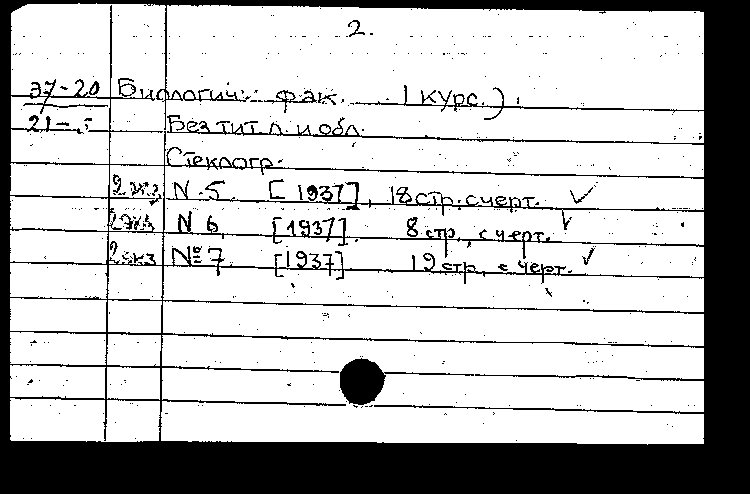 2.
37-20 Биологич. фак. 1 курс.).
Без тит. л. и обл.
Стеклогр.
2 экз. N 5. [1937], 18 стр. с черт. ✓
2 экз N 6. [1937]. 8 стр., с черт. ✓
2 экз № 7. [1937] 19 стр., с черт. ✓